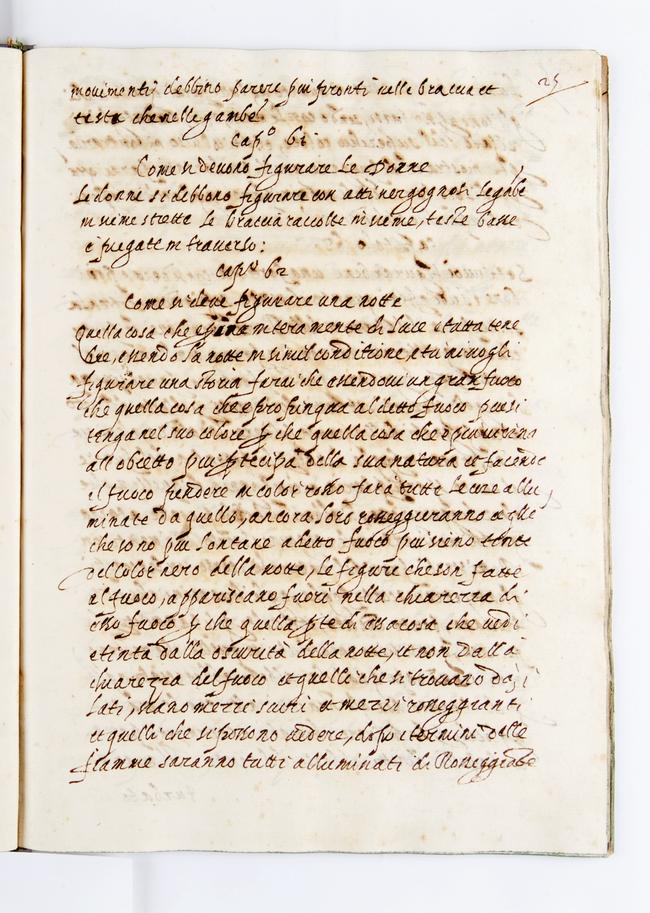 25
movimenti debbino parere piu pronti nelle braccia et
testa che nelle gambe
Cap.º 61
Come si devono figurare le Donne
Le donne si debbono figurare con atti vergognosi le gãbe
insieme strette le braccia raccolte insieme, teste basse
e piegate in traverso:
Cap.º 62
Come si deve figurare una notte
Quella cosa che e priva interamente di luce e tutta tene
bre, essendo la notte in simil conditione, e tu vi vogli
figurare una storia farai che essendovi un gran fuoco
che quella cosa che e propinqua al detto fuoco piu si
tinga nel suo colore p che quella cosa che e piu vicina
all obietto piu ptecipa della sua natura et facendo
il fuoco pendere in color rosso farai tutte le cose allu
minate da quello, ancora loro roseggieranno et qlle
che sono piu lontane a detto fuoco piu sieno tinte
del color nero della notte, le figure che son fatte
al fuoco, appariscano fuori nella chiarezza di
esso fuoco p che quella pte di essa cosa che vedi
e tinta dalla oscurità della notte, et non dalla
chiarezza del fuoco et quelle che si trovano da i
lati, siano mezzi scuri et mezzi roseggianti
et quelli che si possono vedere, dopo i termini delle
fiamme saranno tutti alluminati di Roseggiãte